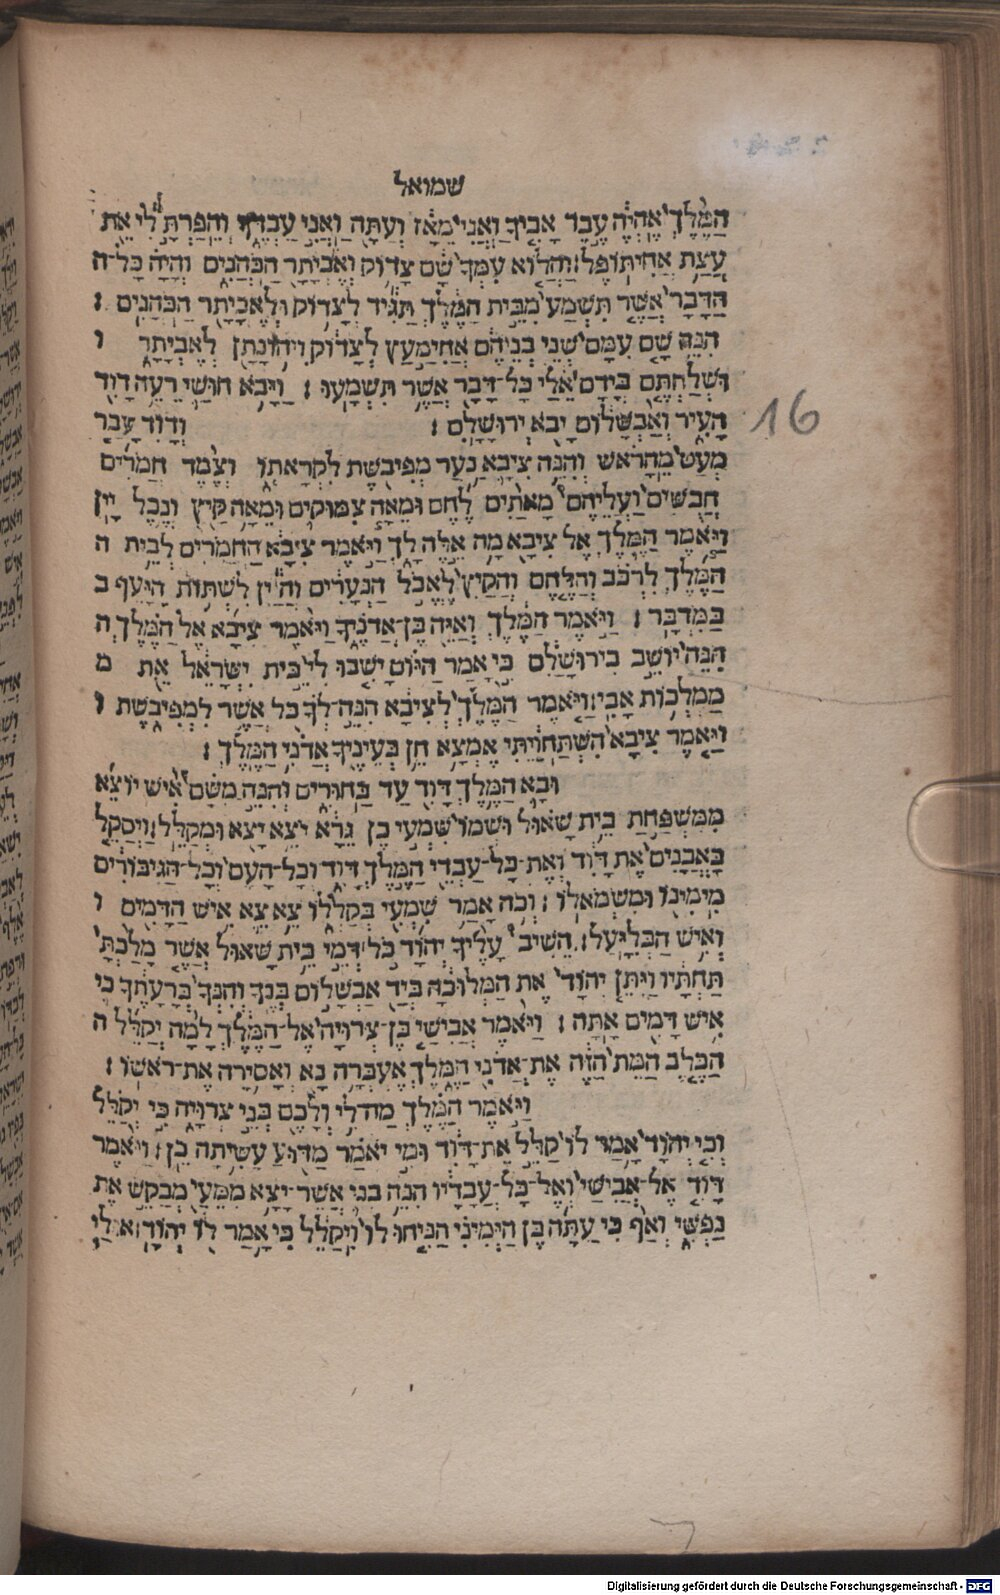 שמואל
המלך אהיה עבד אביך ואני מאז ועתה ואני עבדך והפרת לי את
עצת אחיתופל : והלוא עמך שם צדוק ואביתר הכהנים והיה כל ה
הדבר אשר תשמע מבית המלך תגיד לצדוק ולאביתר הכהנים :
הנה שם עמם שני בניהם אחימעץ לצדוק ויהונתן לאביתר ו
ושלחתם בידם אלי כל דבר אשר תשמעו : ויבא חושי רעה דוד
העיר ואבשלום יבא ירושלם : ודוד עבר
מעט מהראש והנה ציבא נער מפיבשת לקראתו וצמד חמרים
חבשים ועליהם מאתים לחם ומאה צמוקים ומאה קיץ ונבל יין
ויאמר המלך אל ציבא מה אלה לך ויאמר ציבא החמרים לבית ה
המלך לרכב והלחם והקיץ לאכל הנערים והיין לשתות היעף ב
במדבר : ויאמר המלך ואיה בן אדניך ויאמר ציבא אל המלך ה
הנה יושב בירושלם כי אמר היום ישבו לי בית ישראל את מ
ממלכות אבי : ויאמר המלך לציבא הנה לך כל אשר למפיבשת ו
ויאמר ציבא השתחויתי אמצא חן בעיניך אדני המלך :
ובא המלך דוד עד בחורים והנה משם איש יוצא
ממשפחת בית שאול ושמו שמעי בן גרא יצא יצא ומקלל : ויסקל
באבנים את דוד ואת כל־עבדי המלך דויד וכל־העם וכל־הגיבורים
מימינו ומשמאלו : וכה אמר שמעי בקללו צא צא איש הדמים ו
ואיש הבליעל : השיב עליך יהוד כל דמי בית שאול אשר מלכת
תחתיו ויתן יהוד את המלוכה ביד אבשלום בנך והנך ברעתך כי
איש דמים אתה : ויאמר אבישי בן־צרויה אל־המלך למה יקלל ה
הכלב המת הזה את אדני המלך אעברה נא ואסירה את־ראשו :
ויאמר המלך מה לי ולכם בני צרויה כי יקלל
וכי יהוד אמר לו קלל את־דוד ומי יאמר מדוע עשיתה כן : ויאמר
דוד אל־אבישי ואל־כל־עבדיו הנה בני אשר־יצא ממעי מבקש את
נפשי ואף כי עתה בן הימיני הניחו לו ויקלל כי אמר לו יהוד : אולי
16
Digitalisierung gefördert durch die Deutsche Forschungsgemeinschaft - DFG